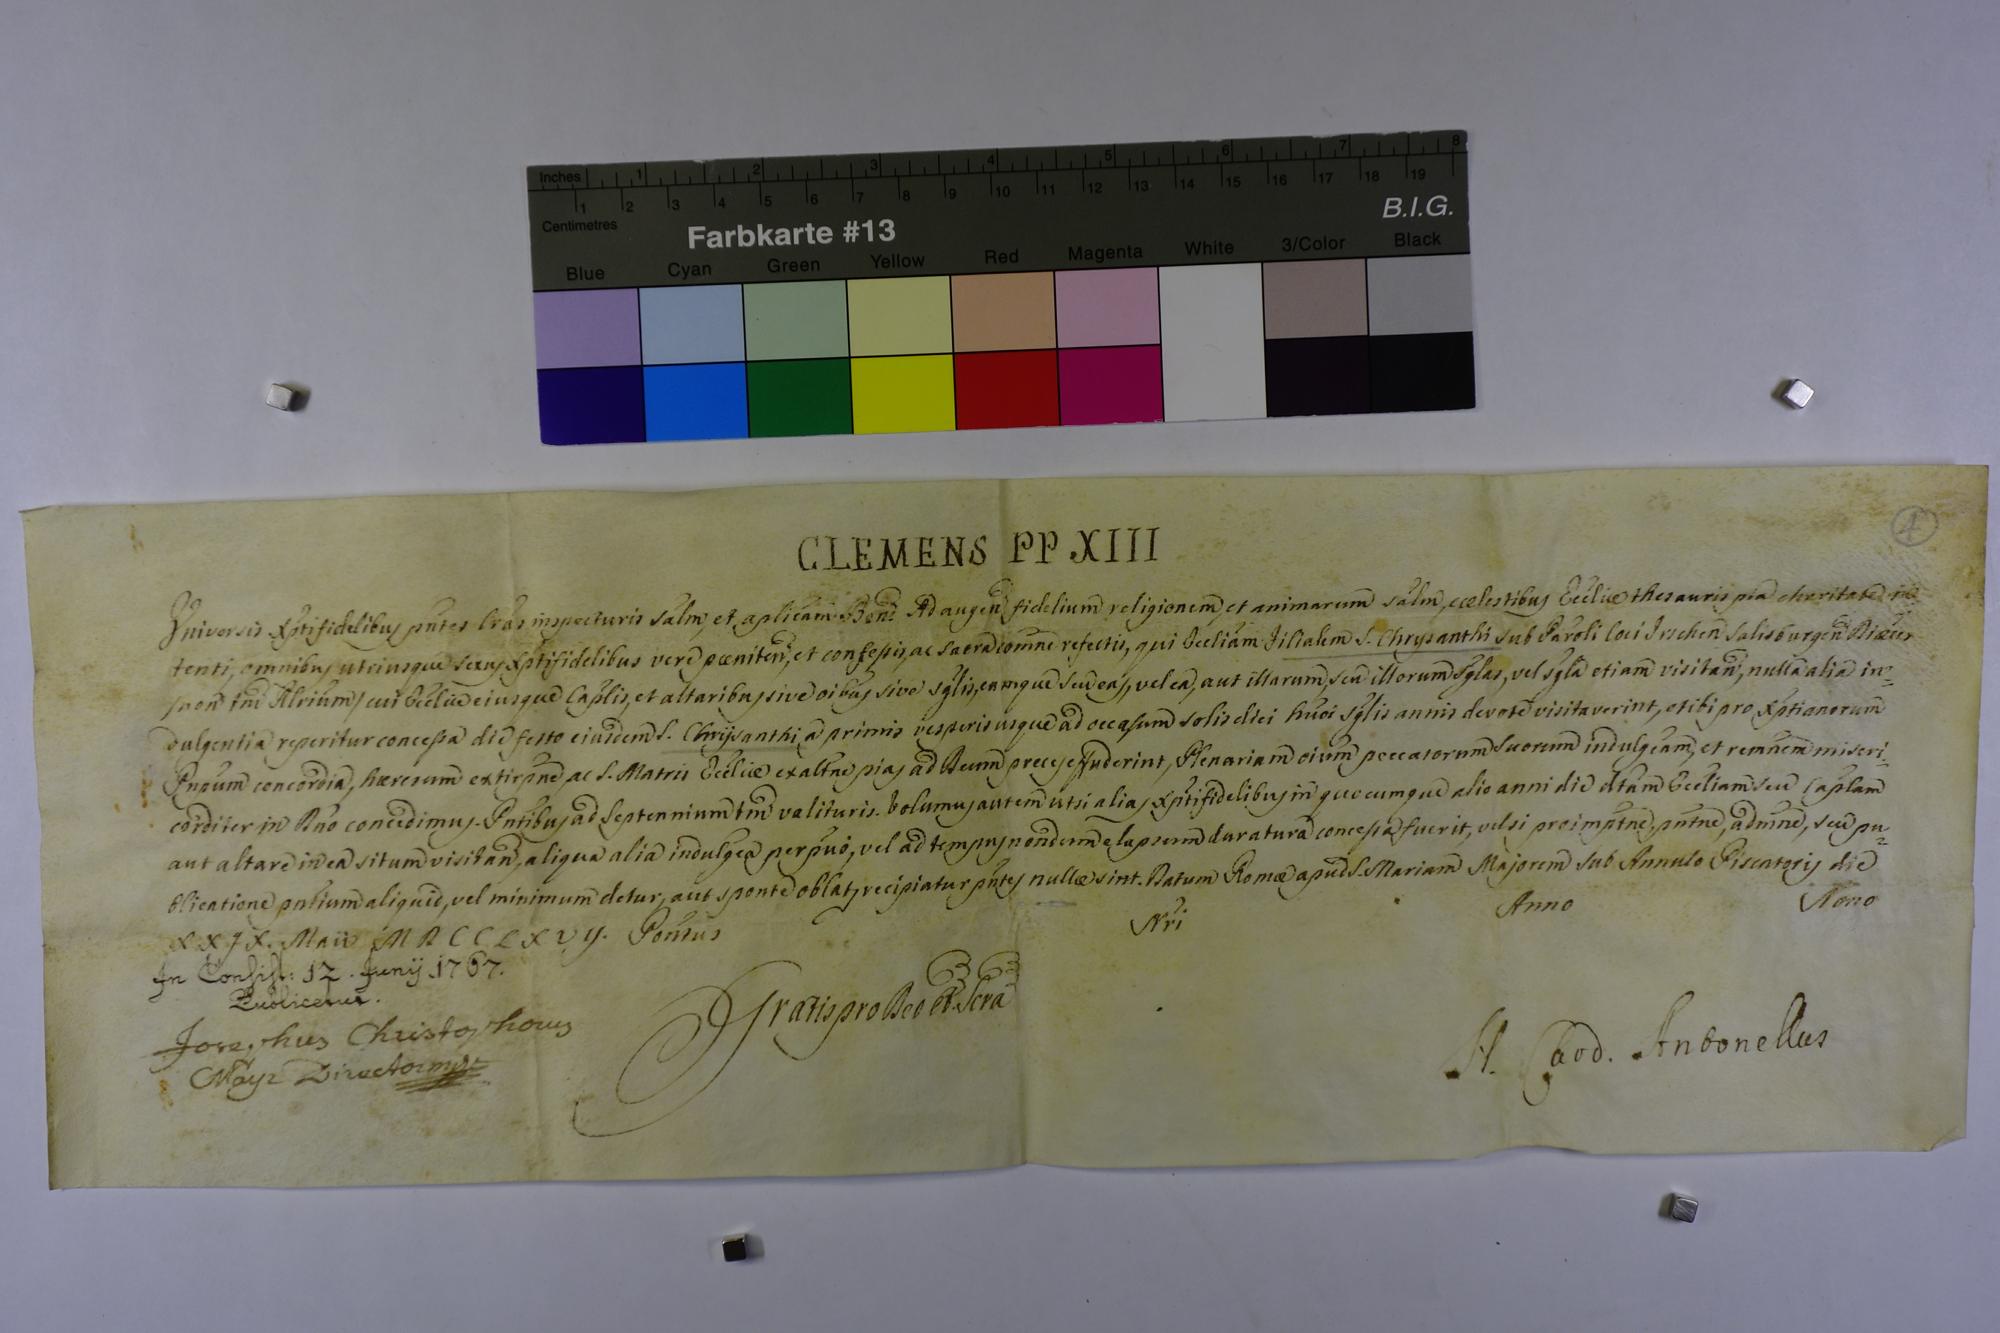 Inches 1 2 3 4 5 6 7 8
1 2 3 4 5 6 7 8 9 10 11 12 13 14 15 16 17 18 19
Centimetres
Farbkarte #13
B.I.G.
Blue Cyan Green Yellow Red Magenta White 3/Color Black
4
CLEMENS PP XIII
Universis Xptifidelibus pntes lras inspecturis salm, et aplicam Ben: Ad augen fidelium religionem, et animarum salm, cœlestibus Eccliæ thesauris pia charitate in
tenti, omnibus utriusque sexus Xptifidelibus vere pœniten, et confessis, ac sacra comne refectis, qui Eccliam Filialem S. Chrysanthi sub Paroli loci Irschen Salisburgen Diæces
non tm Altrium, cui Eccliæ eiusque Caplis, et altaribus sive oibus sive sglis, eamque seu eas, vel ea, aut illarum, seu illorum sglas, vel sgla etiam visitan, nulla alia in=
dulgentia reperitur concessa die festo eiusdem S. Chrysanthi a primis vesperis usque ad occasum solis diei huoi sglis annis devote visitaverint, et ibi pro Xptianorum
Pnpum concordia, hæresum extirpne ac S. Matris Eccliæ exaltne pias ad Deum preces effuderint, Plenariam oium peccatorum suorum indulgeam, et remnem miseri-
corditer in Dno concedimus. Pntibus ad Septennium tm valituris. Volumus autem ut si alias Xptifidelibus in quocumque alio anni die dtam Eccliam seu Caplam
aut altare in ea situm visitan, aliqua alia indulgea perpuo, vel ad tempus nondum elapsum duratura concessa fuerit, vel si pro imptne, pntne, admne, seu pu=
blicatione pntium aliquid, vel minimum detur, aut sponte oblat, recipiatur pntes nullæ sint. Datum Romæ apud S. Mariam Majorem sub Annulo Piscatoris die
XXIX. Maii MDCCLXVII. Pontus Nri Anno Nono
In Consist: 12. Junij 1767.
Publicetur.
Josephus Christophorus
Mayr Director mpr
Gratis pro Deo et Scra
N. Card. Antonellus